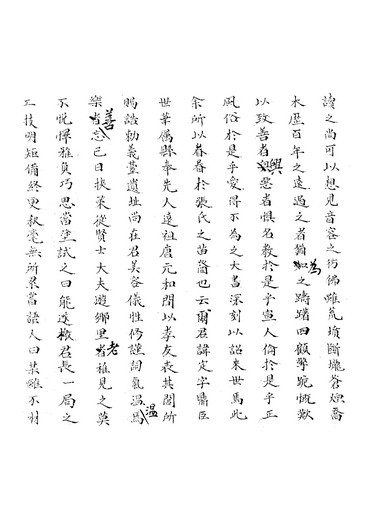 讀之尚可以想見音容之彷彿雖荒墳斷壠蒼烟喬
木歷百年之遠過之者猶為之躊躇回顧擎跪慨歎
以致善者興惡者懼名教於是乎宣人倫於是乎正
風俗於是乎變得不為之大書深刻以詔來世焉此
余所以眷眷於張氏之苗裔也云爾君諱定字鼎臣
世華屬縣奉先人遠祖唐元和間以孝友表其閭所
賜誥勅義臺遺址尚在君美容儀性修謹詞氣温
樂善忘己日挾策從賢士大夫遊鄉里老稚見之莫
不悅懌雅負巧思當塗試之曰能遂檄君長一局之
工技明短備終更秋毫無所累嘗語人曰某雖不材